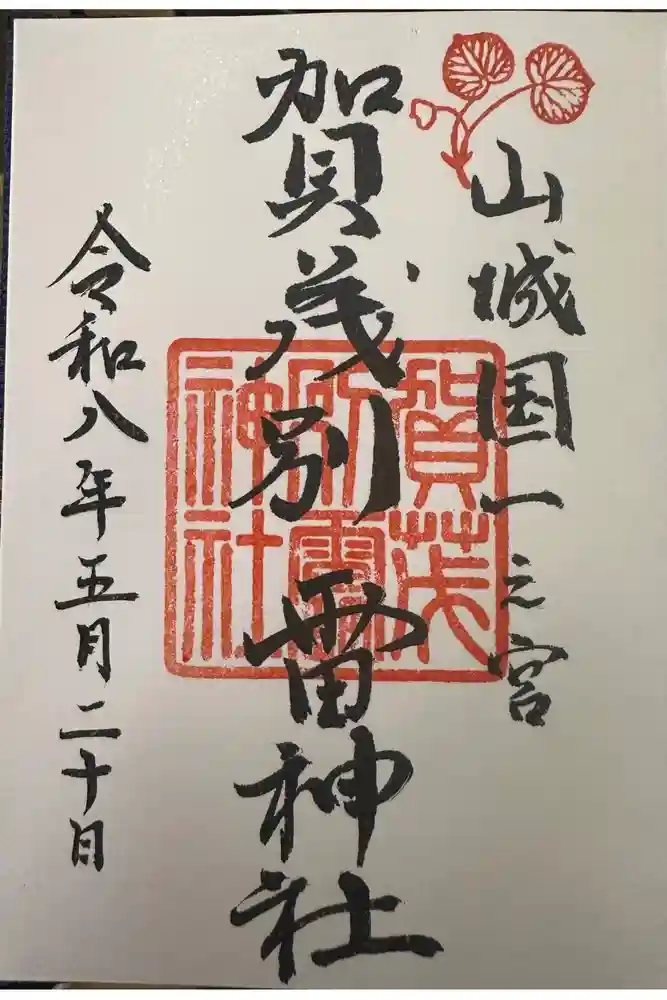 山城国一之宮
賀茂別雷神社
賀茂
別雷
神社
令和八年五月二十日